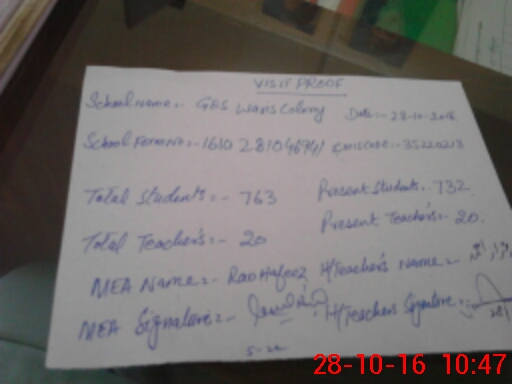 VISIT PROOF
School Name:- GES Waris Colony Date:- 28-10-2016
School Form No:- EMIS CODE:- 35220213
Total Students:- 763 Present Students:- 732
Total Teacher's:- 20 Present Teacher's:- 20
MEA Name:- Rao Hafeez H/Teacher's Name:-
MEA Signature:- H/Teachers Signature:-
28-10-16 10:47